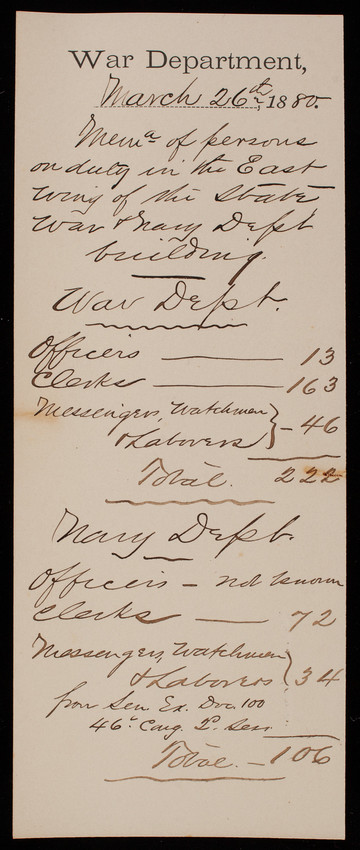 War Department,
March 26th, 1880.
Mema of persons
on duty in the East
wing of the State,
War & Navy Dept
building.
War Dept.
Officers — 13
Clerks — 163
Messengers, Watchmen
& Laborers } - 46
Total. 222
Navy Dept.
Officers - not known
Clerks — 72
Messengers, Watchmen
& Laborers } 34
from Sen. Ex. Doc. 100
46" Cong. 2". Sess.
Total. - 106